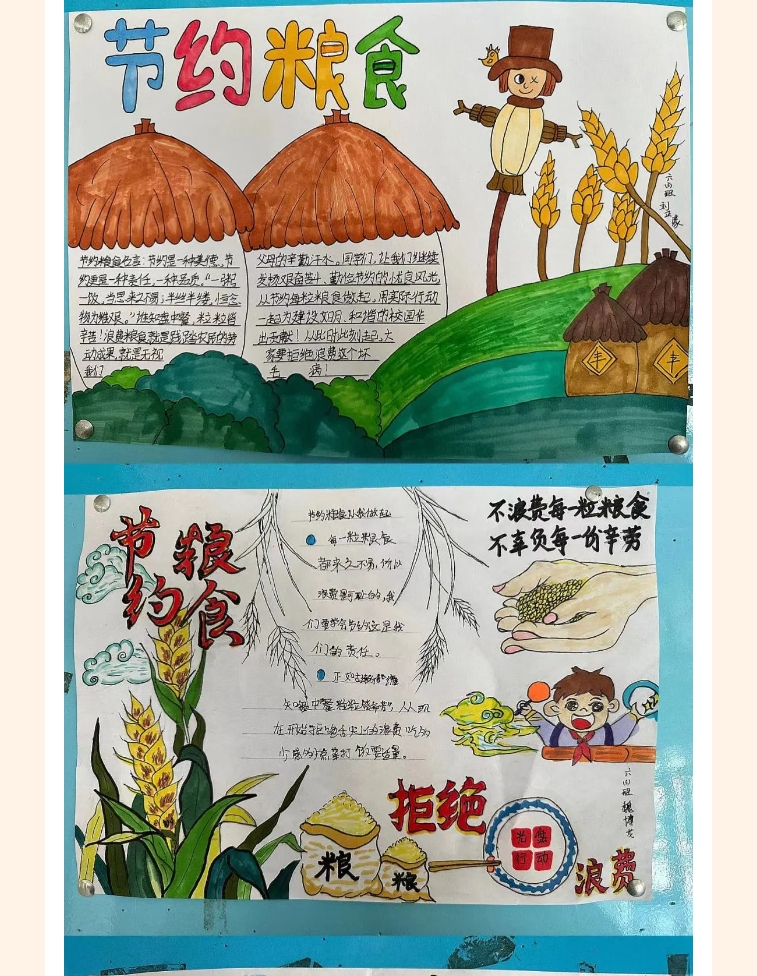 节约粮食
节约粮食名言：节约是一种美德，节
约更是一种责任，一种品质。“一粥
一饭，当思来之不易；半丝半缕，恒念
物力维艰。”谁知盘中餐，粒粒皆
辛苦！浪费粮食就是践踏农民的劳
动成果，就是无视
我们
父母的辛勤汗水。同学们，让我们继续
发扬艰苦奋斗、勤俭节约的优良风光，
从节约每粒粮食做起，用实际行动
一起为建设文明、和谐的校园作
出贡献！从此时此刻起，大
家要拒绝浪费这个坏
毛 病！
六
班
刘
豪
丰
丰
节约
粮食
节约粮食从我做起
每一粒粮食
都来之不易，所以
浪费是可耻的，我
们要学会节约这是我
们的责任。
正如古
知盘中餐粒粒皆辛苦
在开始
不浪费每一粒粮食
不辜负每一份辛劳
拒绝
浪费
粮
粮
光盘
行动
六
班
魏
博